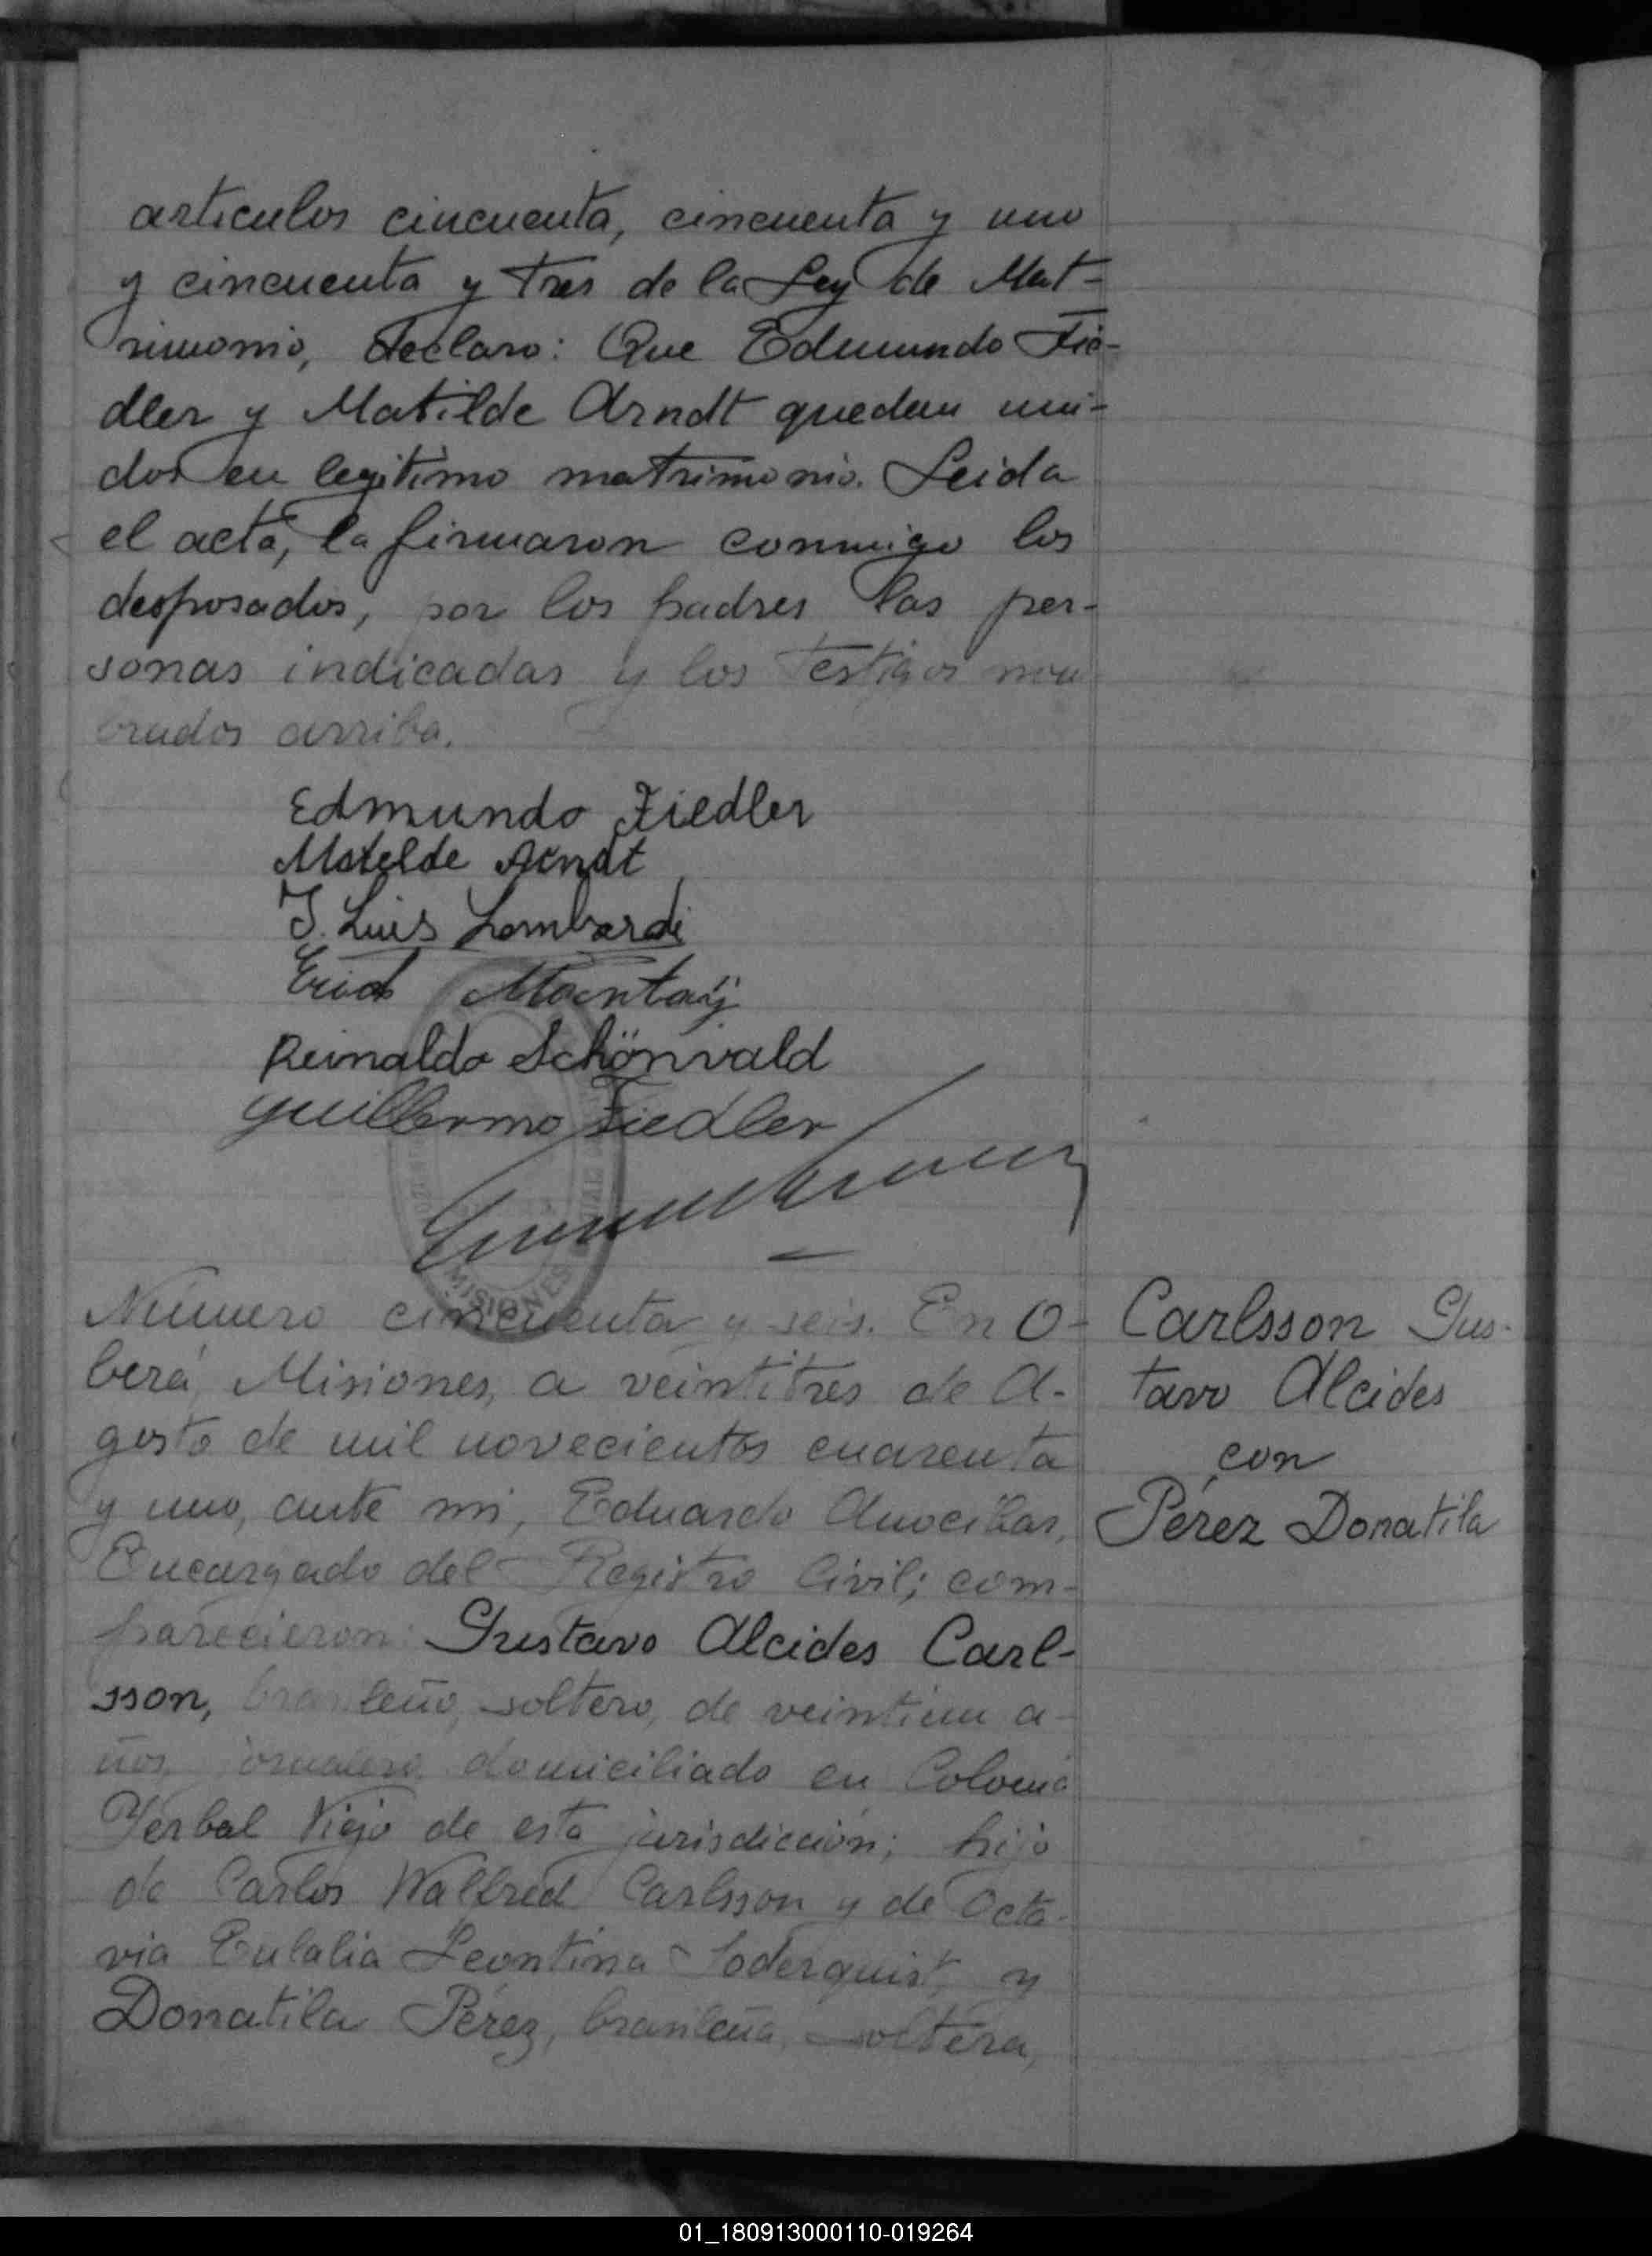 articulos cincuenta, cincuenta y uno
y cincuenta y tres de la Ley de Mat-
rimonio, declaro: Que Edmundo Fie-
dler y Matilde Arndt quedan uni-
dos en legitimo matrimonio. Leida
el acta, la firmaron conmigo los
desposados, por los padres las per-
sonas indicadas y los testigos nom
brados arriba.
Edmundo Fiedler
Matelde Arndt
J. Luis Lombardi
Erich
Reinaldo Schönvald
Guillermo Fiedler
MISIONES
Número cincuenta y seis. En O-
berá, Misiones, a veintitres de A-
gosto de mil novecientos cuarenta
y uno, ante mi, Eduardo
Encargado del Registro Civil; com-
parecieron: Gustavo Alcides Carl-
sson, brasileño, soltero, de veintiun a-
ños, jornalero, domiciliado en Colonia
Yerbal Viejo de esta jurisdicción; hijo
de Carlos Walfred Carlsson y de Octa-
via Eulalia Leontina Soderquist, y
Donatila Pérez, brasileña, soltera,
Carlsson Gus-
tavo Alcides
con
Pérez Donatila
01_180913000110-019264